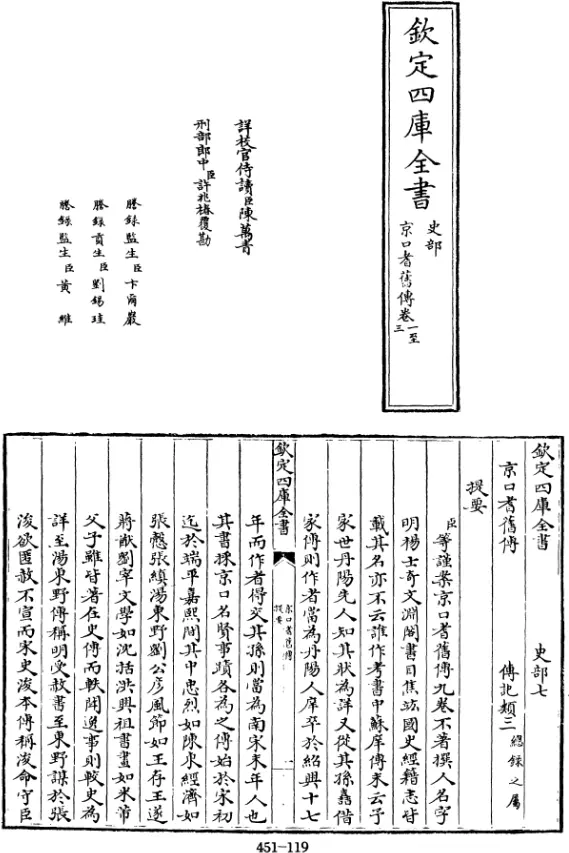 欽定四庫全書
史部
京口耆舊傳卷一至三
詳校官侍讀臣陳萬青
刑部郎中臣許兆椿覆勘
謄錄監生臣卞爾巖
謄錄貢生臣劉錫珪
謄錄監生臣黃維
欽定四庫全書 史部七
京口耆舊傳 傳記類三總錄之屬
提要
臣等謹案京口耆舊傳九卷不著撰人名字
明楊士奇文淵閣書目焦竑國史經籍志皆
載其名亦不云誰作考書中蘇庠傳末云予
家世丹陽先人知其狀為詳又從其孫嘉借
家傳則作者當為丹陽人庠卒於紹興十七
欽定四庫全書 京口耆舊傳提要 一
年而作者得交其孫則當為南宋末年人也
其書採京口名賢事蹟各為之傳始於宋初
迄於端平嘉熙間其中忠烈如陳東經濟如
張慤張縝湯東野劉公彥風節如王存王遂
蔣猷劉宰文學如沈括洪興祖書畫如米芾
父子雖皆著在史傳而軼聞逸事則較史為
詳至湯東野傳稱明受赦書至東野謀於張
浚欲匿赦不宣而宋史浚本傳稱浚命守臣
451-119